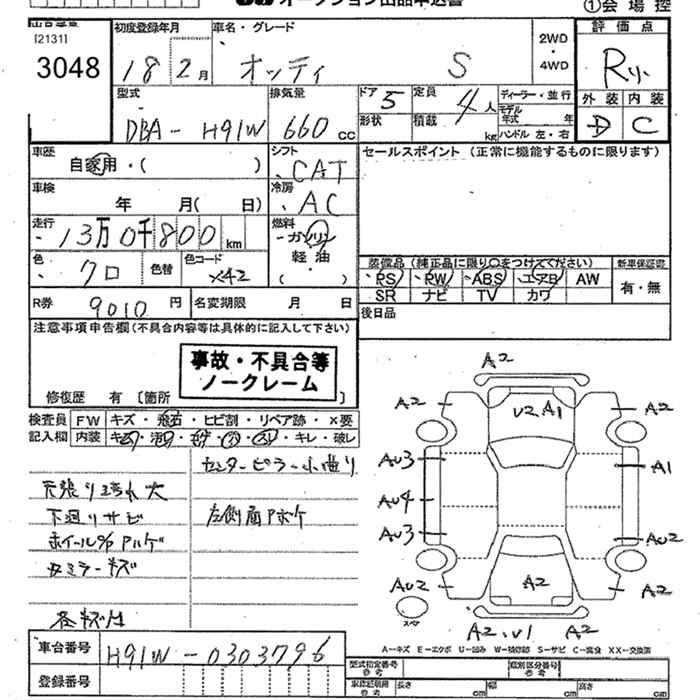 オークション出品申込書
①会場控
[2131]
3048
初度登録年月
18 2月
車名・グレード
オッティ S
2WD
・
4WD
評価点
R
型式
DBA-H91W
排気量
660 cc
ドア 5
形状
定員 4人
積載 kg
ディーラー・並行
モデル年式 年
ハンドル 左・右
外装 内装
D C
車歴
自家用・( )
シフト
CAT
セールスポイント (正常に機能するものに限ります)
車検 年 月( 日)
冷房
AC
走行
13万0千800km
燃料
ガソリン
軽油
( )
色
クロ
色替
色コード
X42
装備品(純正品に限り○をつけてください)
新車保証書
PS PW ABS エアB AW
SR ナビ TV カワ
有・無
R券 9010円
名変期限 月 日
後日品
注意事項申告欄(不具合内容等は具体的に記入して下さい)
事故・不具合等
ノークレーム
修復歴 有 [箇所 ]
検査員
記入欄
FW キズ・飛石・ヒビ割・リペア跡・×要
内装 ・キレ・破レ
センターピラー小曲り
下廻りサビ
左側面Pボケ
A2
A2 A2
U2.A1
AU3 A1
AU4
AU3 AU2
AU2 A2 A2
スペア
A2.U1 A2
A-キズ E-エクボ U-凹み W-補修跡 S-サビ C-腐食 XX-交換済
車台番号
H91W-0303796
登録番号
型式指定番号
参考
類別区分番号
参考
長さ cm
幅 cm
高さ cm